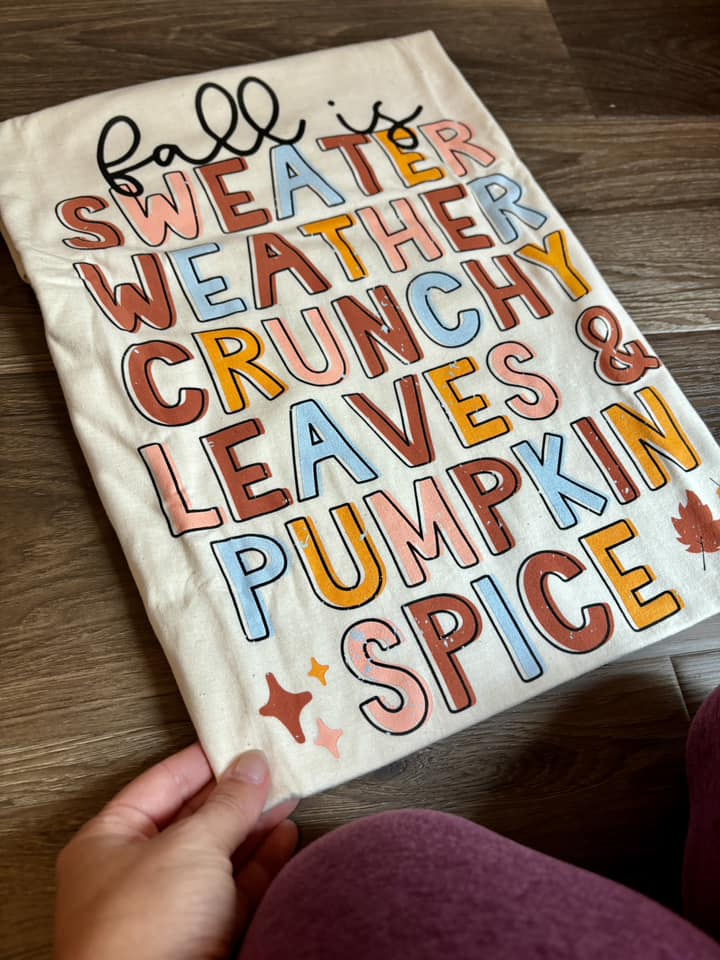 fall is
SWEATER
WEATHER
CRUNCHY
LEAVES &
PUMPKIN
SPICE